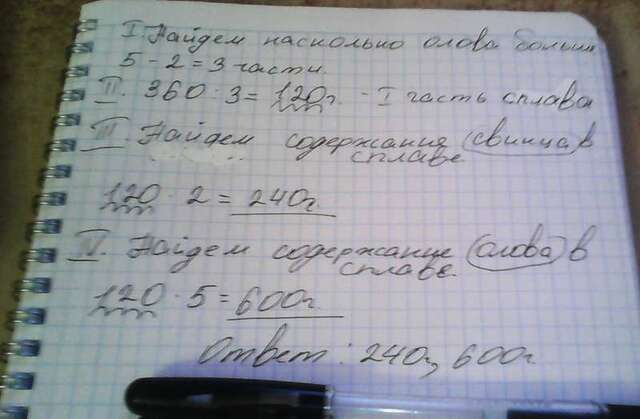 I. Найдем насколько олова больше
5 - 2 = 3 части.
II. 360 : 3 = 120г. - I часть сплава
III. Найдем содержания (свинца) в
сплаве.
120 · 2 = 240г.
IV. Найдем содержание (олова) в
сплаве.
120 · 5 = 600г.
Ответ: 240г, 600г